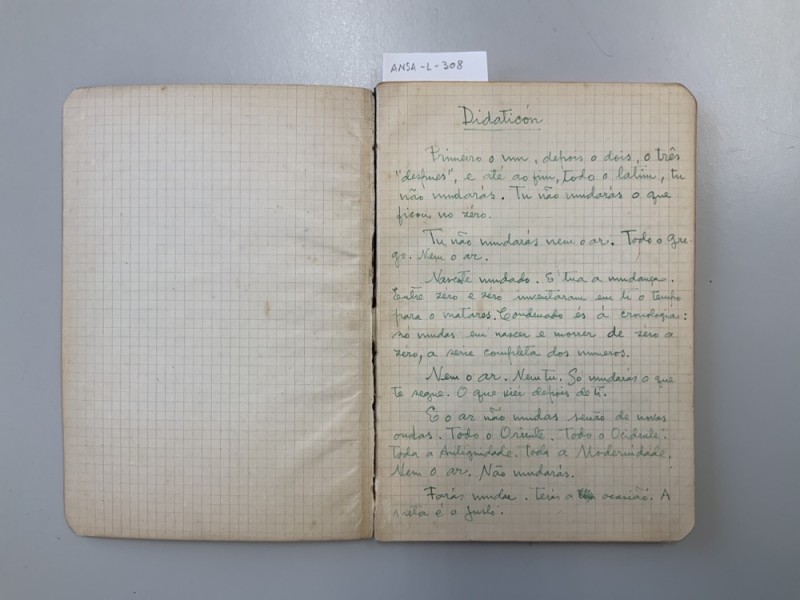 ANSA-L-308
Didaticón
Primeiro o um, depois o dois, o três
"despues", e até ao fim, todo o latim, tu
não mudarás. Tu não mudarás o que
ficou no zéro.
Tu não mudarás nem o ar. Todo o gre-
go. Nem o ar.
Nasceste mudado. É tua a mudança.
Entre zéro e zéro inventaram em ti o tempo
para o matares. Condenado és à cronologia:
só mudas em nascer e morrer de zéro a
zéro, a serie completa dos numeros.
Nem o ar. Nem tu. Só mudarás o que
te segue. O que vier depois de ti.
E o ar não mudas senão de novas
ondas. Todo o Oriente. Todo o Ocidente.
Toda a Antiguidade. Toda a Modernidade.
Nem o ar. Não mudarás.
Farás mudar. Terás a ocasião. A
é o